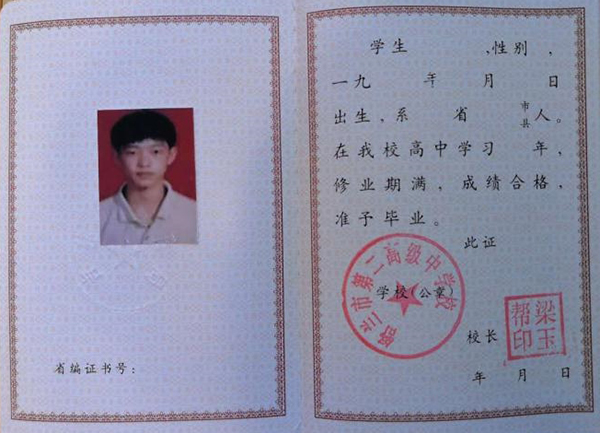 省编证书号：
学生 、性别 ，
一九 年 月 日
出生，系 省 市县 人。
在我校高中学习 年，
修业期满，成绩合格，
准予毕业。
此证
舒兰市第二高级中学校
学校(公章)
校长
梁玉
帮印
年 月 日